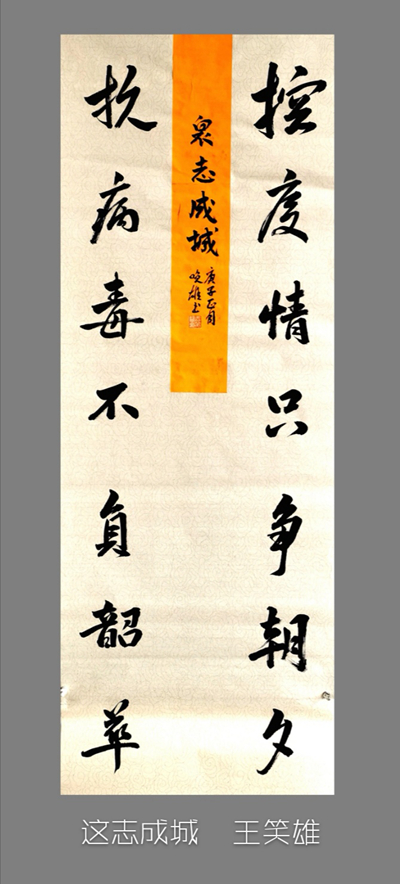 控疫情只争朝夕
衆志成城
庚子正月
笑雄书
抗病毒不負韶華
这志成城 王笑雄